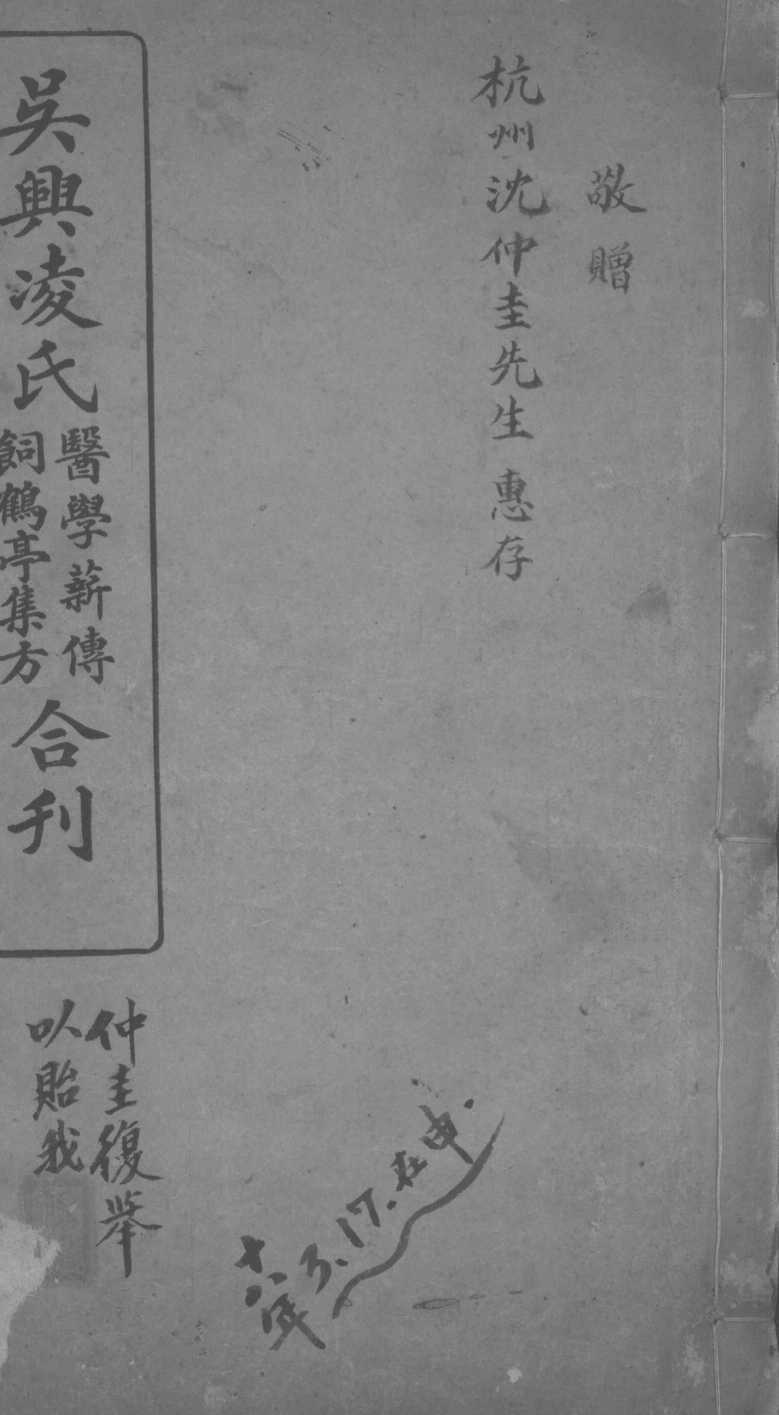 敬贈
杭州沈仲圭先生 惠存
吳興凌氏
醫學薪傳
飼鶴亭集方
合刊
仲圭復舉
以貽我
十八年3.17.在申.